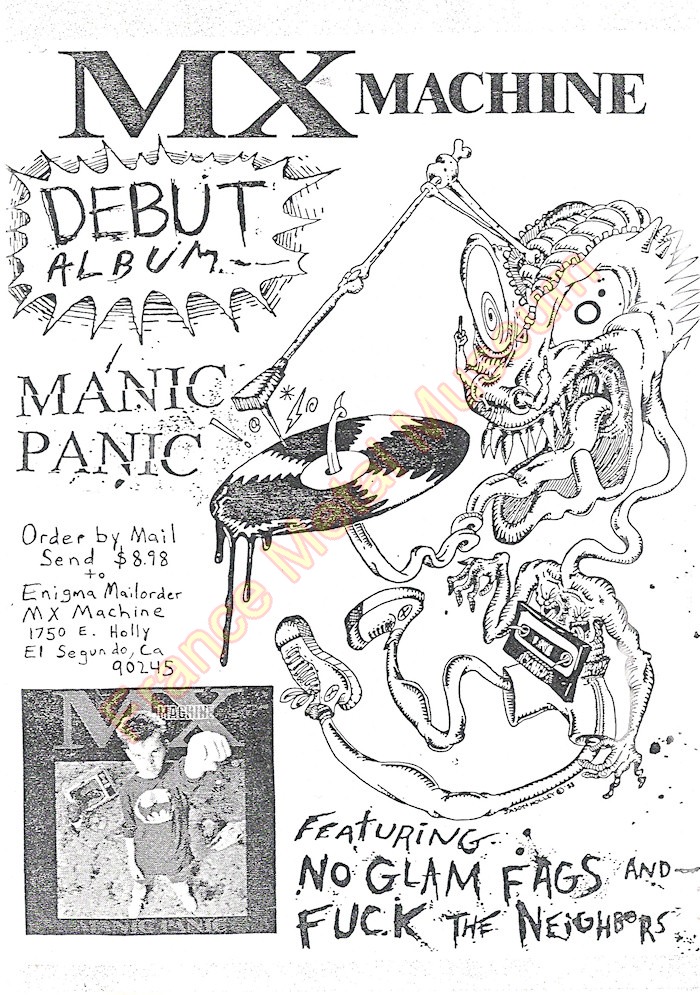 MX MACHINE
DEBUT
ALBUM
MANIC
PANIC
Order by Mail
Send $8.98
to
Enigma Mailorder
MX Machine
1750 E. Holly
El Segundo, Ca
90245
MX
MACHINE
MANIC PANIC
JASON HOLLEY © '88
FEATURING
NO GLAM FAGS AND
FUCK THE NEIGHBORS
France Metal Museum